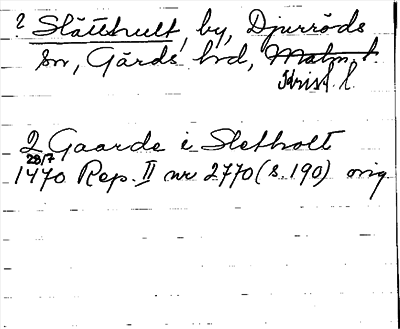 ? Slättshult, by, Djurröds
sn, Gärds hd, Malm. l.
Krist. l.
2 Gaarde i Sletholt
29/7
1470 Rep. II nr 2770 (s. 190) orig